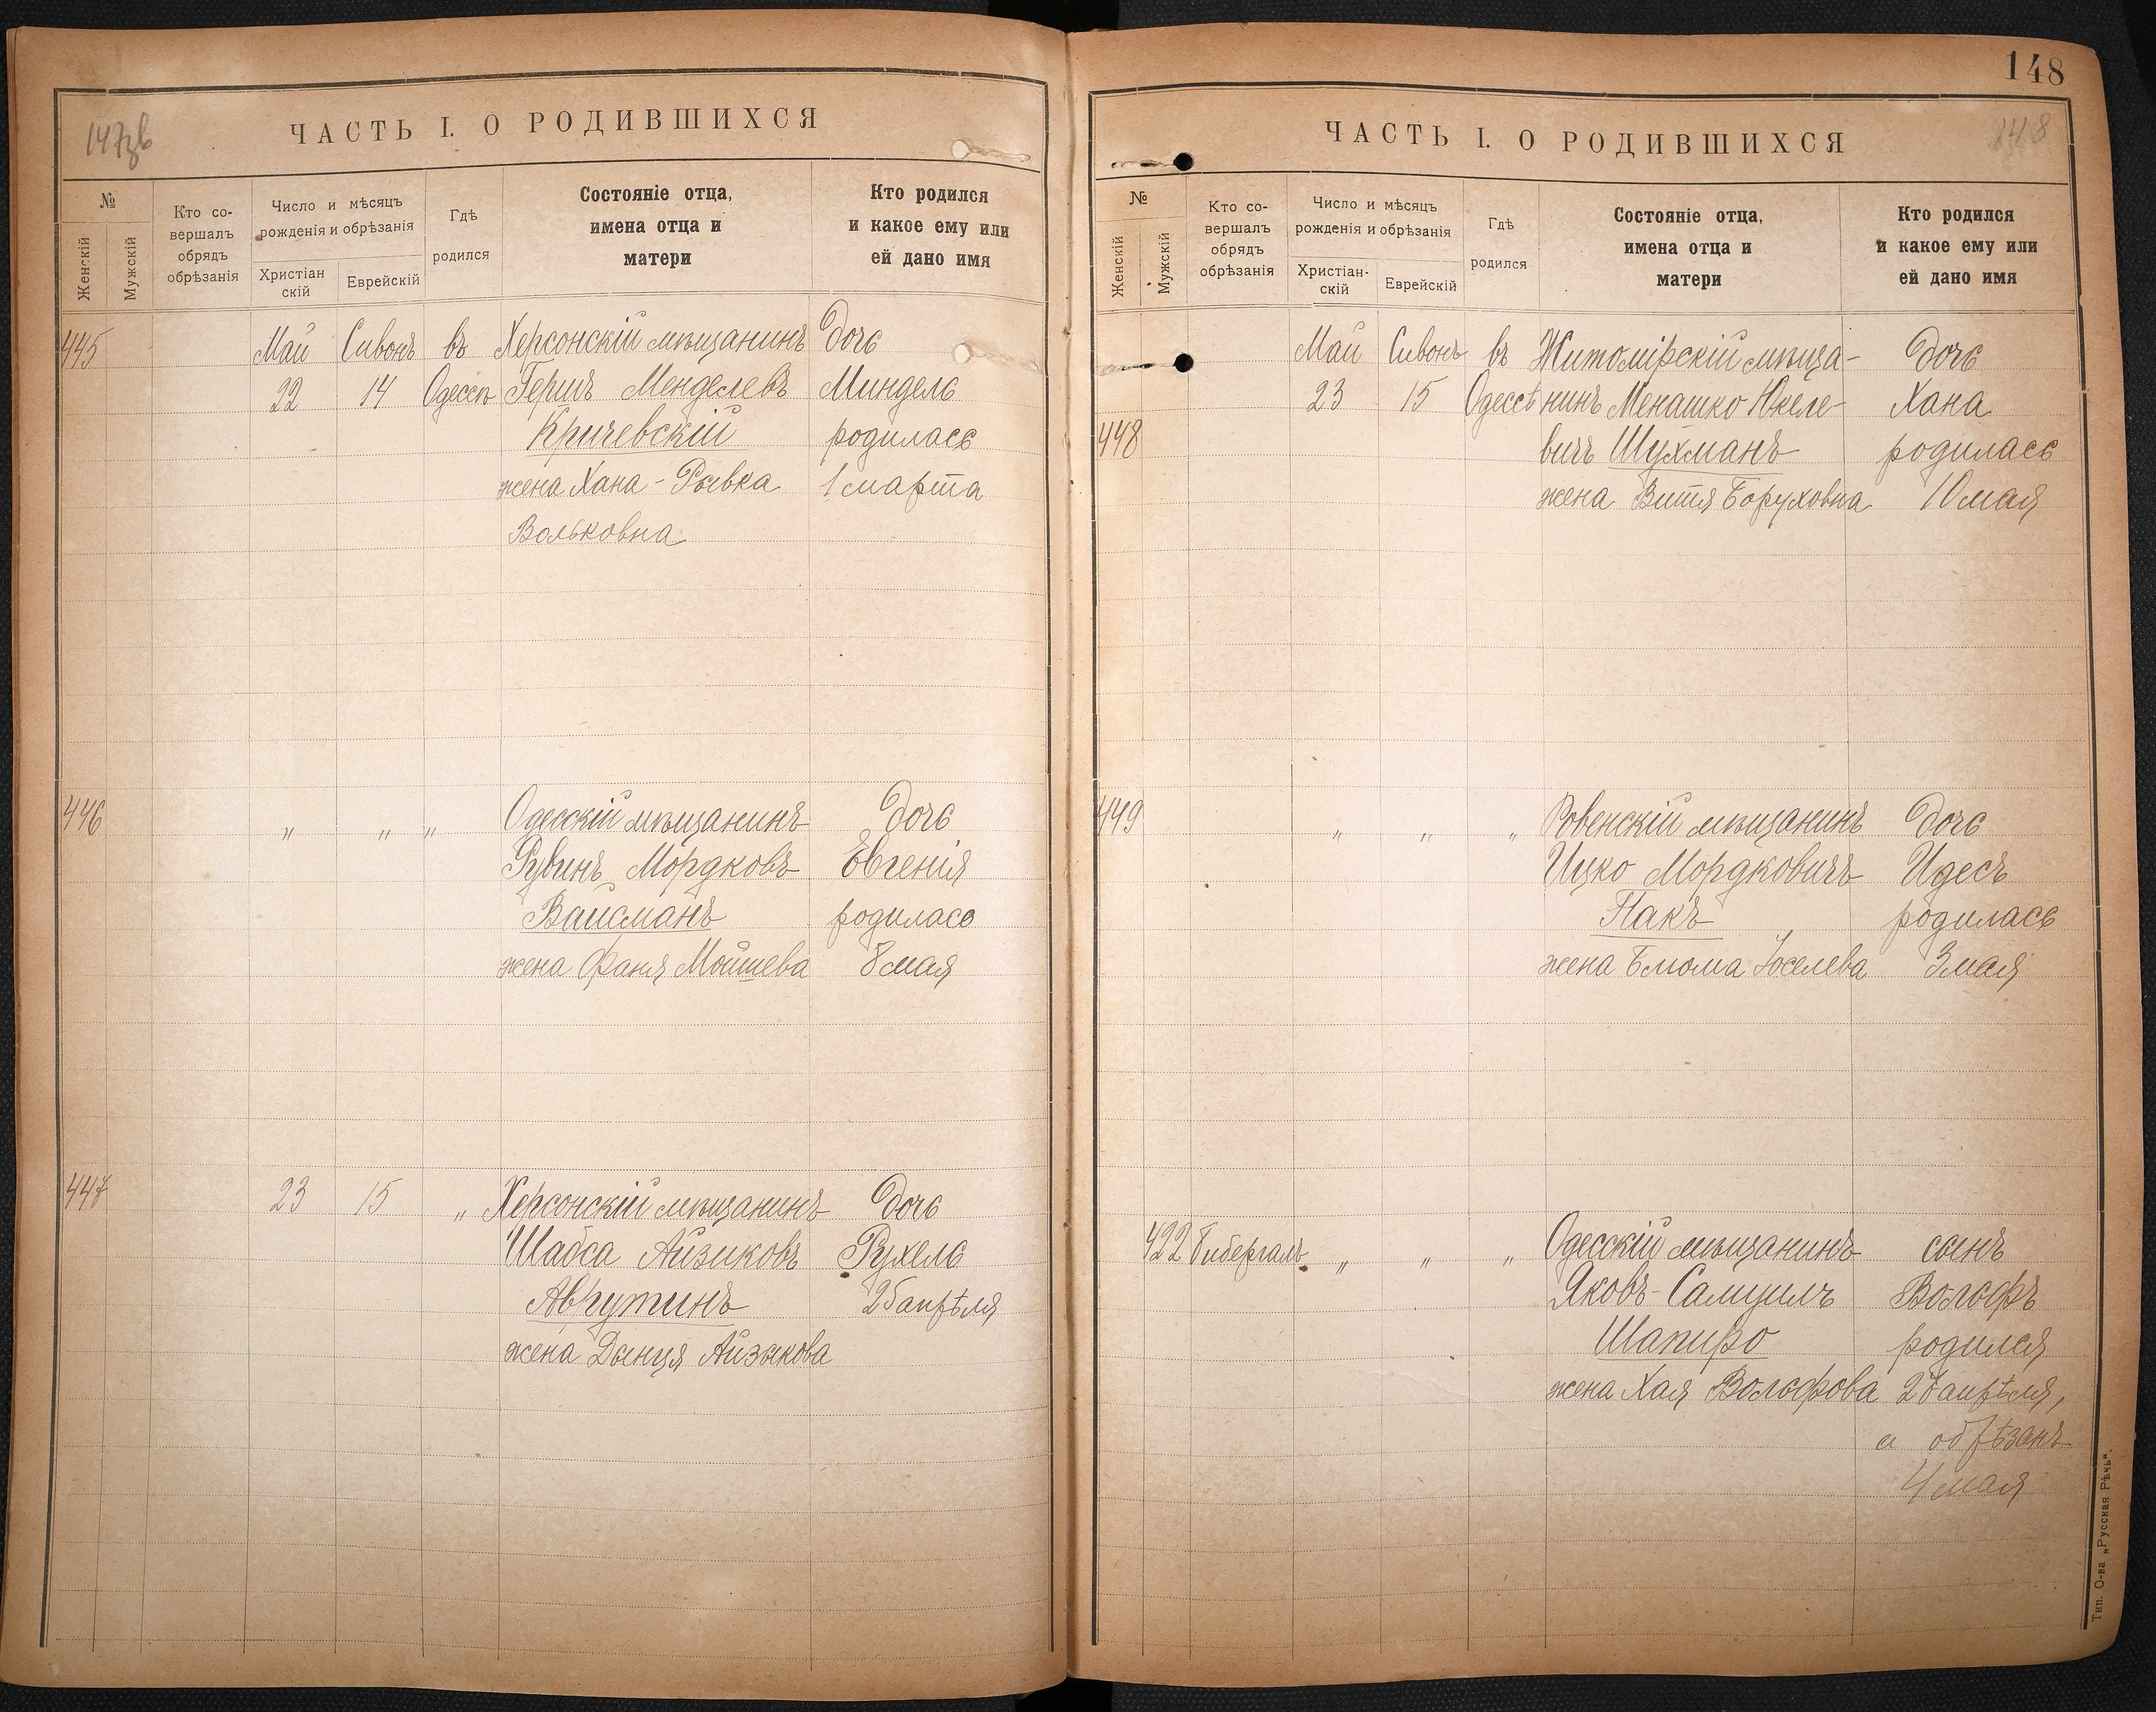 147зв
ЧАСТЬ I. О РОДИВШИХСЯ
№
Женскій
Мужскій
Кто со-
вершалъ
обрядъ
обрѣзанія
Число и мѣсяцъ
рожденія и обрѣзанія
Христіан
скій
Еврейскій
Гдѣ
родился
Состояніе отца,
имена отца и
матери
Кто родился
и какое ему или
ей дано имя
445 Май Сивонъ въ Херсонскій мѣщанинъ дочь
22 14 Одессѣ Гершъ Менделевъ Миндель
Кричевскій родилась
жена Хана-Рывка 1 марта
Вольковна
446 " " " Одесскій мѣщанинъ дочь
Рувинъ Мордковъ Евгенія
Вайсманъ родилась
жена Фаня Мойшева 8 мая
447 23 15 " Херсонскій мѣщанинъ дочь
Шабса Айзиковъ Рухель
Аврутинъ 25 апрѣля
жена Дынця Айзыкова
148
ЧАСТЬ I. О РОДИВШИХСЯ
148
№
Женскій
Мужскій
Кто со-
вершалъ
обрядъ
обрѣзанія
Число и мѣсяцъ
рожденія и обрѣзанія
Христіан-
скій
Еврейскій
Гдѣ
родился
Состояніе отца,
имена отца и
матери
Кто родился
и какое ему или
ей дано имя
Май Сивонъ въ Житомірскій мѣща- дочь
23 15 Одессѣ нинъ Менашко Юкеле- Хана
448 вичъ Шухманъ родилась
жена Витя Боруховна 10 мая
449 " " " Ровенскій мѣщанинъ дочь
Ицко Мордковичъ Идесъ
Пакъ родилась
жена Блюма Іоселева 3 мая
422 Гибергалъ " " " Одесскій мѣщанинъ сынъ
Яковъ-Самуилъ Вольфъ
Шапиро родился
жена Хая Вольфова апрѣля,
а обрѣзанъ
4 мая
Тип. О-ва „Русская Рѣчь".